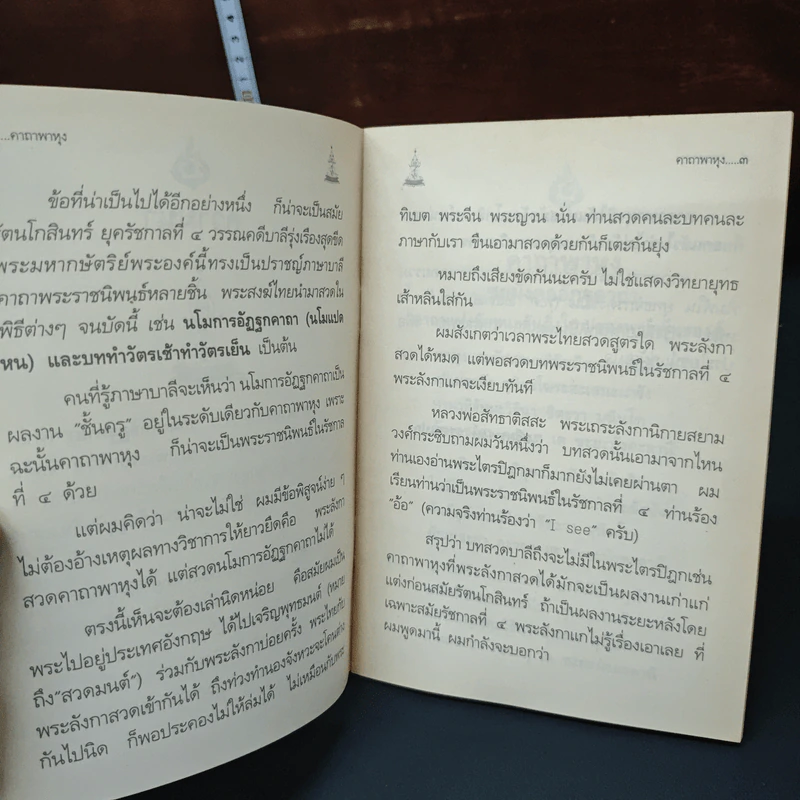 ...คาถาพาหุง
ข้อที่น่าเป็นไปได้อีกอย่างหนึ่ง ก็น่าจะเป็นสมัย
รัตนโกสินทร์ ยุครัชกาลที่ ๔ วรรณคดีบาลีรุ่งเรืองสุดขีด
พระมหากษัตริย์พระองค์นี้ทรงเป็นปราชญ์ภาษาบาลี
คาถาพระราชนิพนธ์หลายชิ้น พระสงฆ์ไทยนำมาสวดใน
พิธีต่างๆ จนบัดนี้ เช่น นโมการอัฏฐกคาถา (นโมแปด
หน) และบททำวัตรเช้าทำวัตรเย็น เป็นต้น
คนที่รู้ภาษาบาลีจะเห็นว่า นโมการอัฏฐกคาถาเป็น
ผลงาน "ชั้นครู" อยู่ในระดับเดียวกับคาถาพาหุง เพราะ
ฉะนั้นคาถาพาหุง ก็น่าจะเป็นพระราชนิพนธ์ในรัชกาล
ที่ ๔ ด้วย
แต่ผมคิดว่า น่าจะไม่ใช่ ผมมีข้อพิสูจน์ง่าย ๆ
ไม่ต้องอ้างเหตุผลทางวิชาการให้ยาวยืดคือ พระลังกา
สวดคาถาพาหุงได้ แต่สวดนโมการอัฏฐกคาถาไม่ได้
ตรงนี้เห็นจะต้องเล่านิดหน่อย คือสมัยผมเป็น
พระไปอยู่ประเทศอังกฤษ ได้ไปเจริญพุทธมนต์ (หมาย
ถึง"สวดมนต์") ร่วมกับพระลังกาบ่อยครั้ง พระไทยกับ
พระลังกาสวดเข้ากันได้ ถึงท่วงทำนองจังหวะจะโคนต่าง
กันไปนิด ก็พอประคองไม่ให้ล่มได้ ไม่เหมือนกับพระ
คาถาพาหุง.....๓
ทิเบต พระจีน พระญวน นั่น ท่านสวดคนละบทคนละ
ภาษากับเรา ขืนเอามาสวดด้วยกันก็เตะกันยุ่ง
หมายถึงเสียงขัดกันนะครับ ไม่ใช่แสดงวิทยายุทธ
เส้าหลินใส่กัน
ผมสังเกตว่าเวลาพระไทยสวดสูตรใด พระลังกา
สวดได้หมด แต่พอสวดบทพระราชนิพนธ์ในรัชกาลที่ ๔
พระลังกาแกจะเงียบทันที
หลวงพ่อสัทธาติสสะ พระเถระลังกานิกายสยาม
วงศ์กระซิบถามผมวันหนึ่งว่า บทสวดนั้นเอามาจากไหน
ท่านเองอ่านพระไตรปิฎกมาก็มากยังไม่เคยผ่านตา ผม
เรียนท่านว่าเป็นพระราชนิพนธ์ในรัชกาลที่ ๔ ท่านร้อง
"อ้อ" (ความจริงท่านร้องว่า "I see" ครับ)
สรุปว่า บทสวดบาลีถึงจะไม่มีในพระไตรปิฎกเช่น
คาถาพาหุงที่พระลังกาสวดได้มักจะเป็นผลงานเก่าแก่
แต่งก่อนสมัยรัตนโกสินทร์ ถ้าเป็นผลงานระยะหลังโดย
เฉพาะสมัยรัชกาลที่ ๔ พระลังกาแกไม่รู้เรื่องเอาเลย ที่
ผมพูดมานี้ ผมกำลังจะบอกว่า